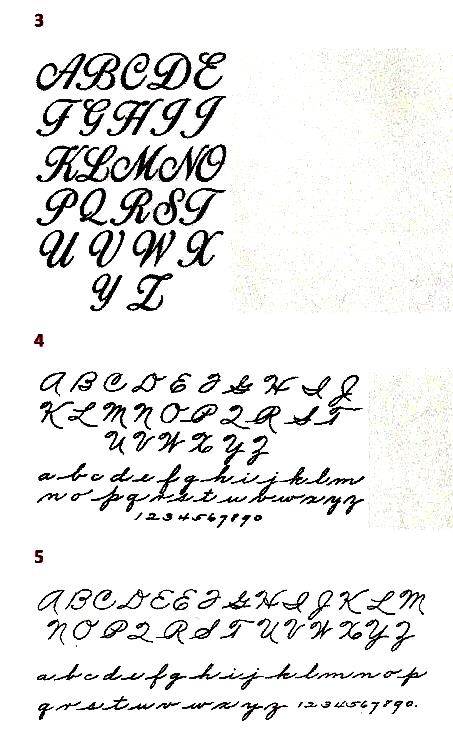 3
ABCDE
FGHIJ
KLMNO
PQRST
U V W X
Y Z
4
A B C D E F G H I J
K L M N O P Q R S T
U V W X Y Z
a b c d e f g h i j k l m
n o p q r s t u v w x y z
1 2 3 4 5 6 7 8 9 0
5
A B C D E E F G H I J K L M
N O P Q R S T U V W X Y Z
a b c d e f g h i j k l m n o p
q r s t u v w x y z 1 2 3 4 5 6 7 8 9 0.